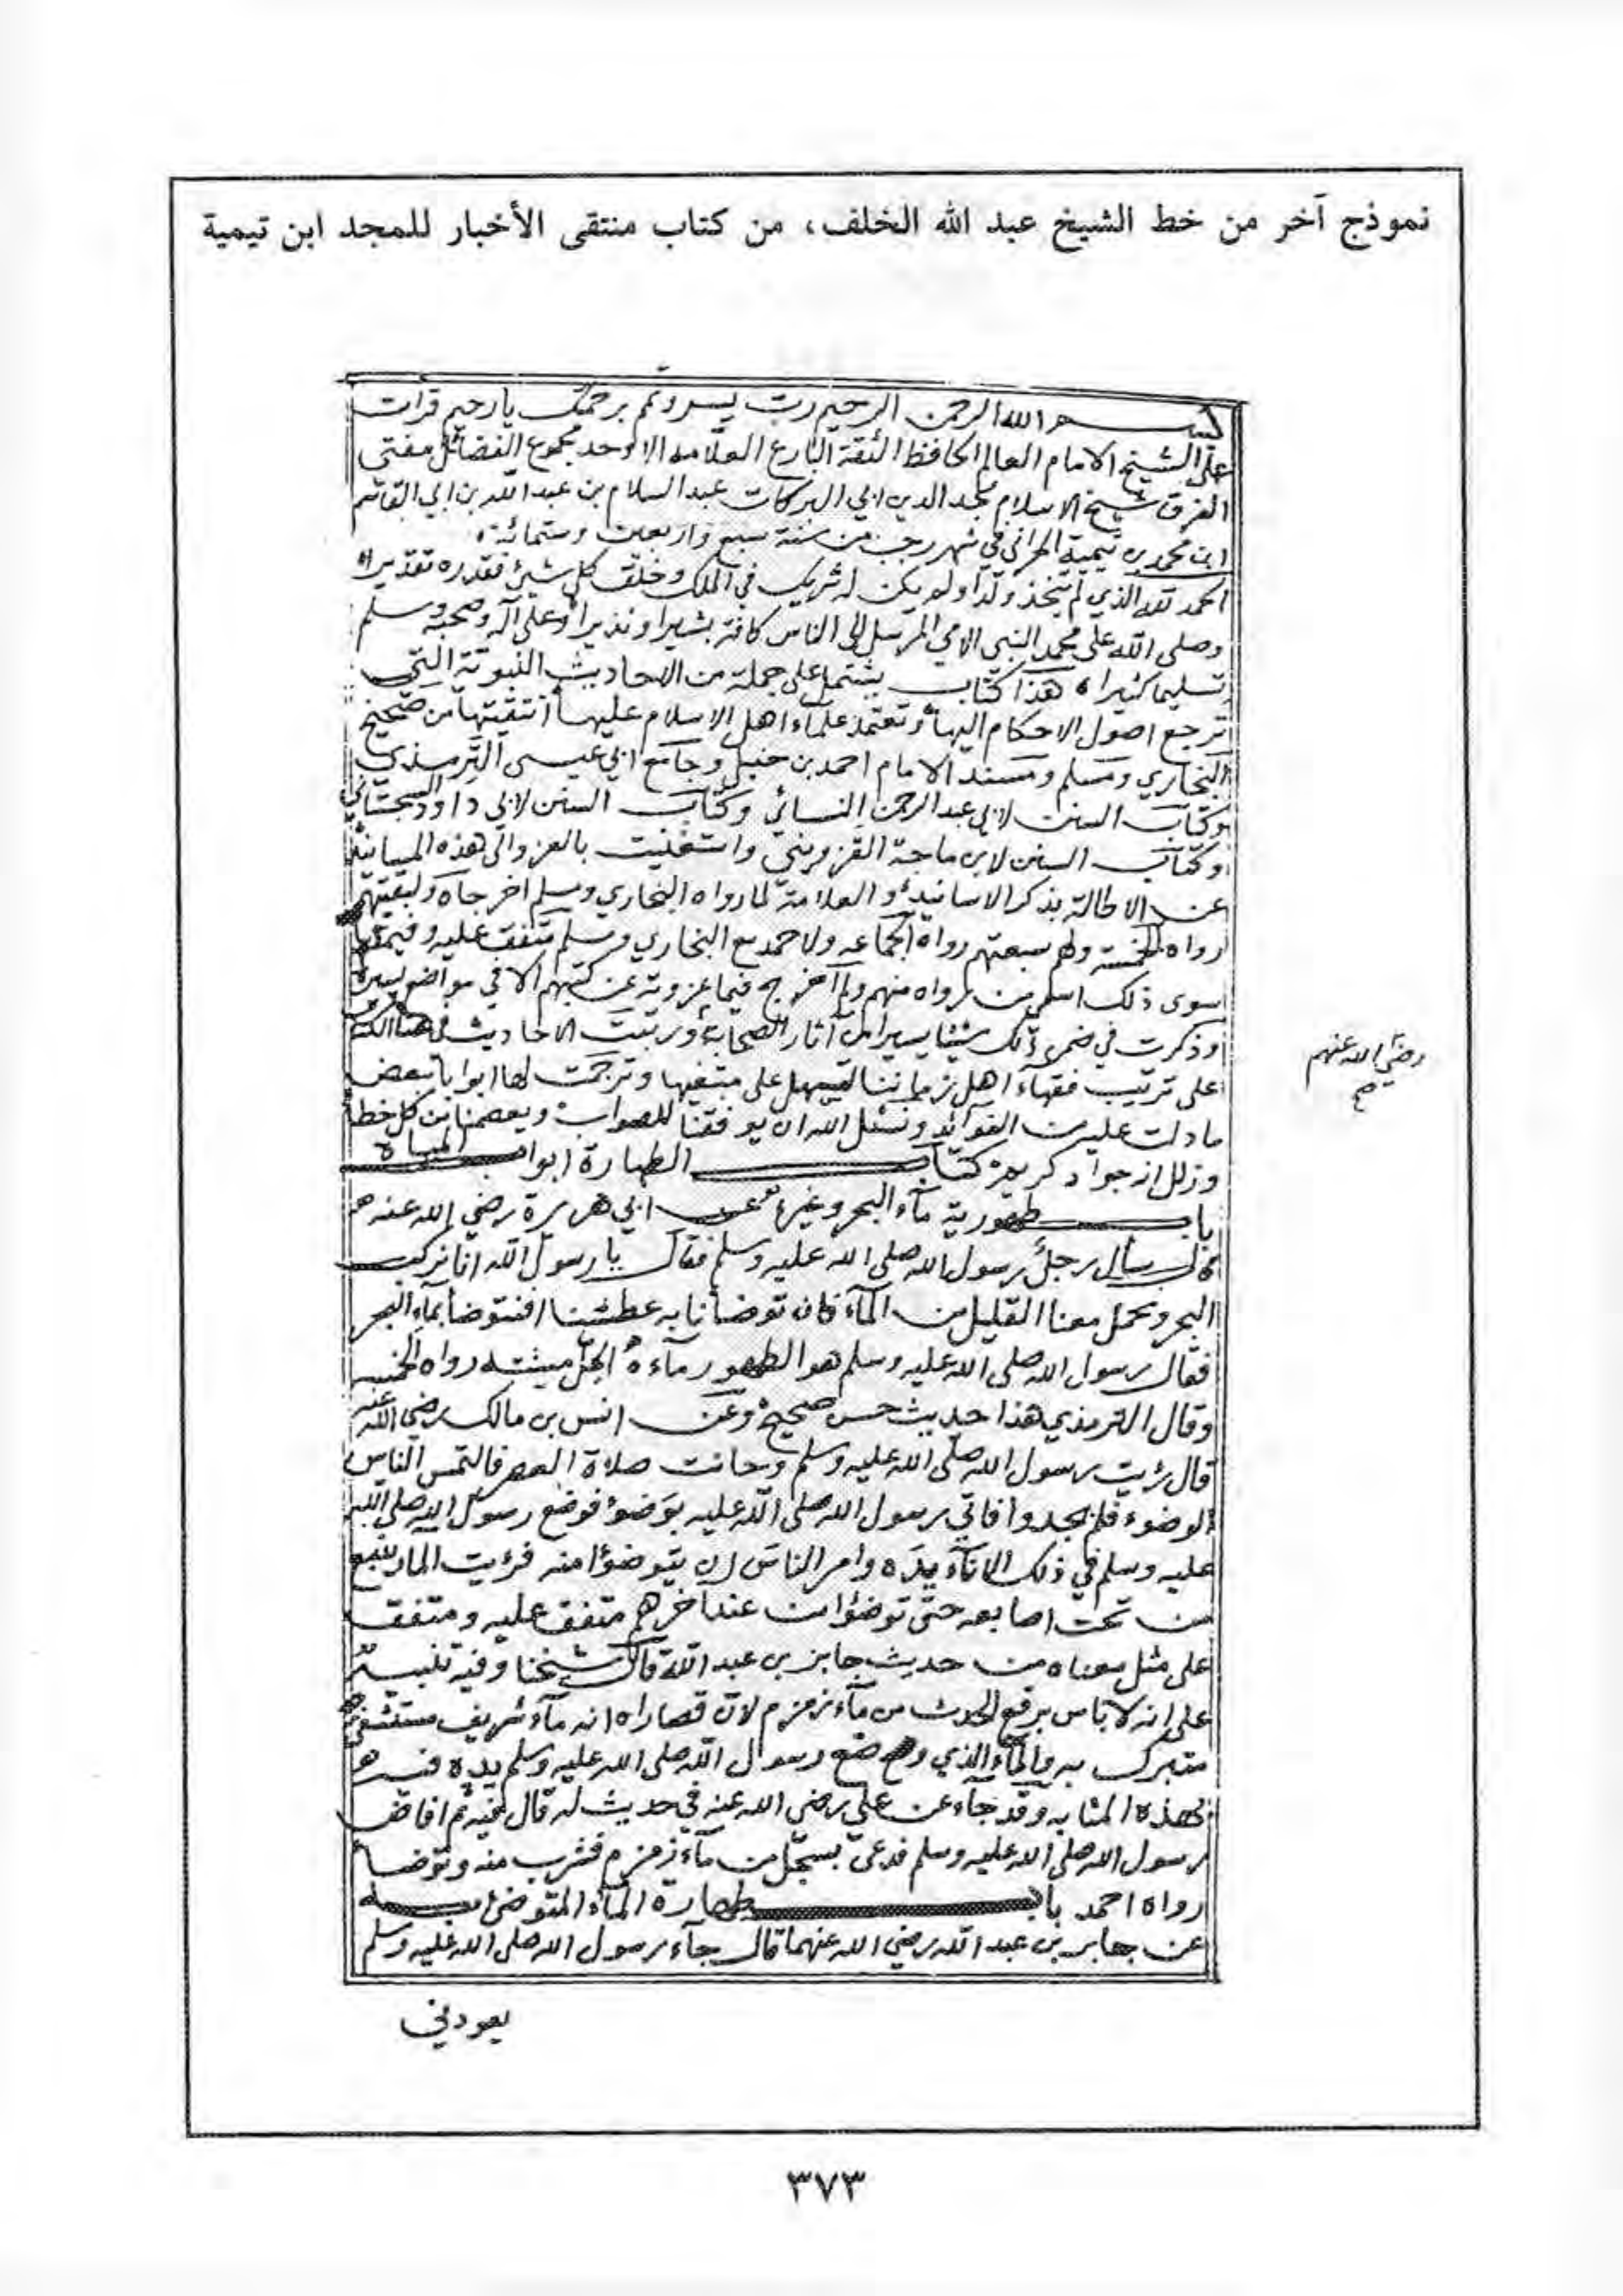 نموذج آخر من خط الشيخ عبد الله الخلف، من كتاب منتقى الأخبار للمجد ابن تيمية
بسم الله الرحمن الرحيم رب يسر وتمم برحمتك يا رحيم قرات
على الشيخ الامام العالم الحافظ الثقة البارع العلامه الاوحد مجموع الفضائل مفتي
الفرق شيخ الاسلام مجد الدين ابي البركات عبد السلام بن عبد الله بن ابي القاسم
ابن محمد بن تيمية الحراني في شهر رجب من سنة سبع واربعين وستمائة
الحمد لله الذي لم يتخذ ولدا ولم يكن له شريك في الملك وخلق كل شيئ فقدره تقديرا
وصلى الله على محمد النبي الامي المرسل الى الناس كافة بشيرا ونذيرا وعلى آله وصحبه وسلم
تسليما كثيرا هذا كتاب يشتمل على جملة من الاحاديث النبوية التي
ترجع اصول الاحكام اليها وتعتمد علماء اهل الاسلام عليها انتقيتها من صحيح
البخاري ومسلم ومسند الامام احمد بن حنبل وجامع ابي عيسى الترمذي
وكتاب السنن لابي عبد الرحمن النسائي وكتاب السنن لابي داود السجستاني
وكتاب السنن لابن ماجة القزويني واستغنيت بالعزو الى هذه المسانيد
عن الاطالة بذكر الاسانيد والعلامة لما رواه البخاري ومسلم اخرجاه ولبقيتهم
رواه الخمسة ولهم سبعتهم رواه الجماعه ولاحمد مع البخاري ومسلم متفق عليه وفيما
سوى ذلك اسمي من رواه منهم ولم اخرج فيما عزوته عن كتبهم الا في مواضع يسيرة
وذكرت في ضمن ذلك شيئا يسيرا من آثار الصحابة ورتبت الاحاديث في هذا الكتاب
على ترتيب فقهاء اهل زماننا لتسهل على مبتغيها وترجمت لها ابوابا ببعض
ما دلت عليه من الفوائد ونسئل الله ان يوفقنا للصواب ويعصمنا من كل خطا
وزلل انه جواد كريم كتاب الطهارة ابواب المياه
باب طهورية ماء البحر وغيره عن ابي هريرة رضي الله عنه
قال سأل رجل رسول الله صلى الله عليه وسلم فقال يا رسول الله انا نركب
البحر ونحمل معنا القليل من الماء فان توضأنا به عطشنا افنتوضأ بماء البحر
فقال رسول الله صلى الله عليه وسلم هو الطهور ماءه الحل ميتته رواه الخمسه
وقال الترمذي هذا حديث حسن صحيح وعن انس بن مالك رضي الله عنه
قال رئيت رسول الله صلى الله عليه وسلم وحانت صلاة العصر فالتمس الناس
الوضوء فلم يجدوا فاتي رسول الله صلى الله عليه بوضوء فوضع رسول الله صلى الله
عليه وسلم في ذلك الاناء يده وامر الناس ان يتوضؤا منه فرئيت الماء ينبع
من تحت اصابعه حتى توضؤا من عند اخرهم متفق عليه ومتفق
على مثل معناه من حديث جابر بن عبد الله قال شيخنا وفيه تنبيه
على انه لا باس برفع الحدث من ماء زمزم لان قصاراه انه ماء شريف مستشفى
متبرك به والماء الذي وضع رسول الله صلى الله عليه وسلم يده فيه
بهذه المثابه وقد جاء عن علي رضي الله عنه في حديث له قال فيه ثم افاض
رسول الله صلى الله عليه وسلم فدعى بسجل من ماء زمزم فشرب منه وتوضا
رواه احمد باب طهارة الماء المتوضئ به
عن جابر بن عبد الله رضي الله عنهما قال جاء رسول الله صلى الله عليه وسلم
يعودني
رضي الله عنهم
صح
٣٧٣